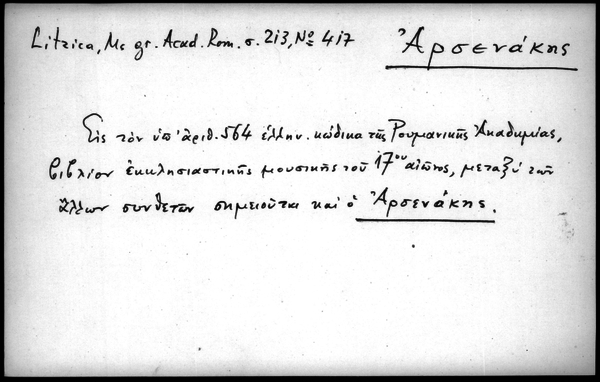 Litzica, Ms gr. Acad. Rom. σ. 213, Nº 417
Ἀρσενάκης
Εἰς τὸν ὑπ' ἀριθ. 564 ἑλλην. κώδικα τῆς Ρουμανικῆς Ἀκαδημίας,
βιβλίον ἐκκλησιαστικῆς μουσικῆς τοῦ 17ου αἰῶνος, μεταξὺ τῶν
ἄλλων συνθετῶν σημειοῦται καὶ ὁ Ἀρσενάκης.